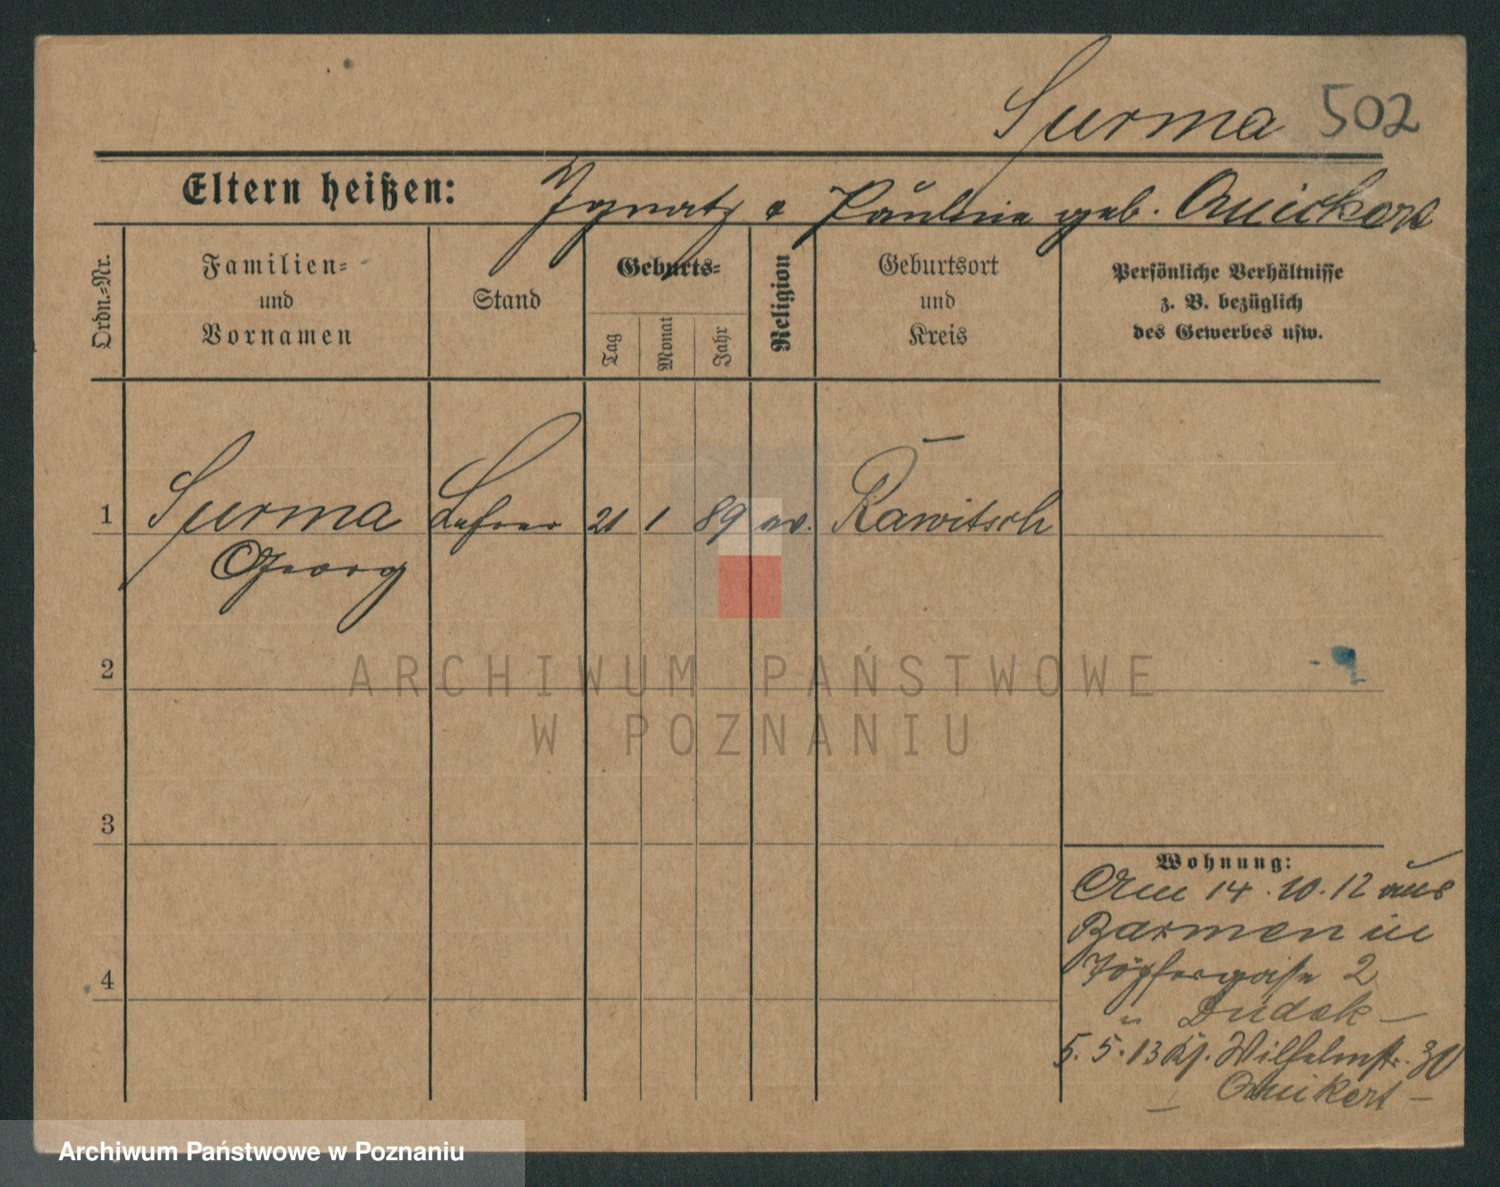 Surma 502
Eltern heißen: Ignatz & Pauline geb. Quickert
Ordn.-Nr.
Familien-
und
Vornamen
Stand
Geburts-
Tag
Monat
Jahr
Religion
Geburtsort
und
Kreis
Persönliche Verhältnisse
z. B. bezüglich
des Gewerbes usw.
1 Surma Lehrer 21 1 89 ev. Rawitsch
Georg
2
3
4
Wohnung:
Am 14.10.12 aus
Barmen in
Töpfergasse 2
" Dudek
5.5.13 Kl. Wilhelmstr. 30
Quikert
ARCHIWUM PAŃSTWOWE
W POZNANIU
Archiwum Państwowe w Poznaniu